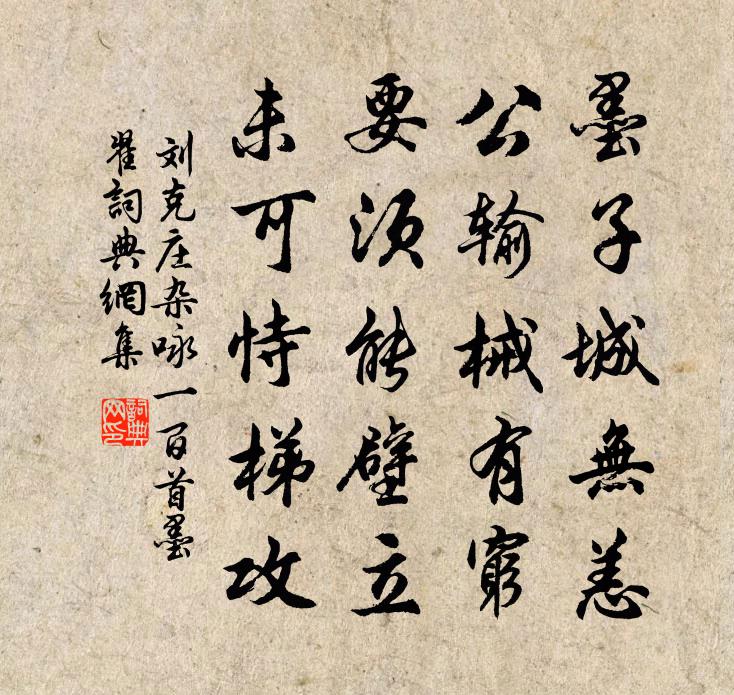 墨子城無恙
公输械有窮
要须能壁立
未可恃梯攻
刘克庄杂咏一百首墨
翟詞典網集
詞典
网印